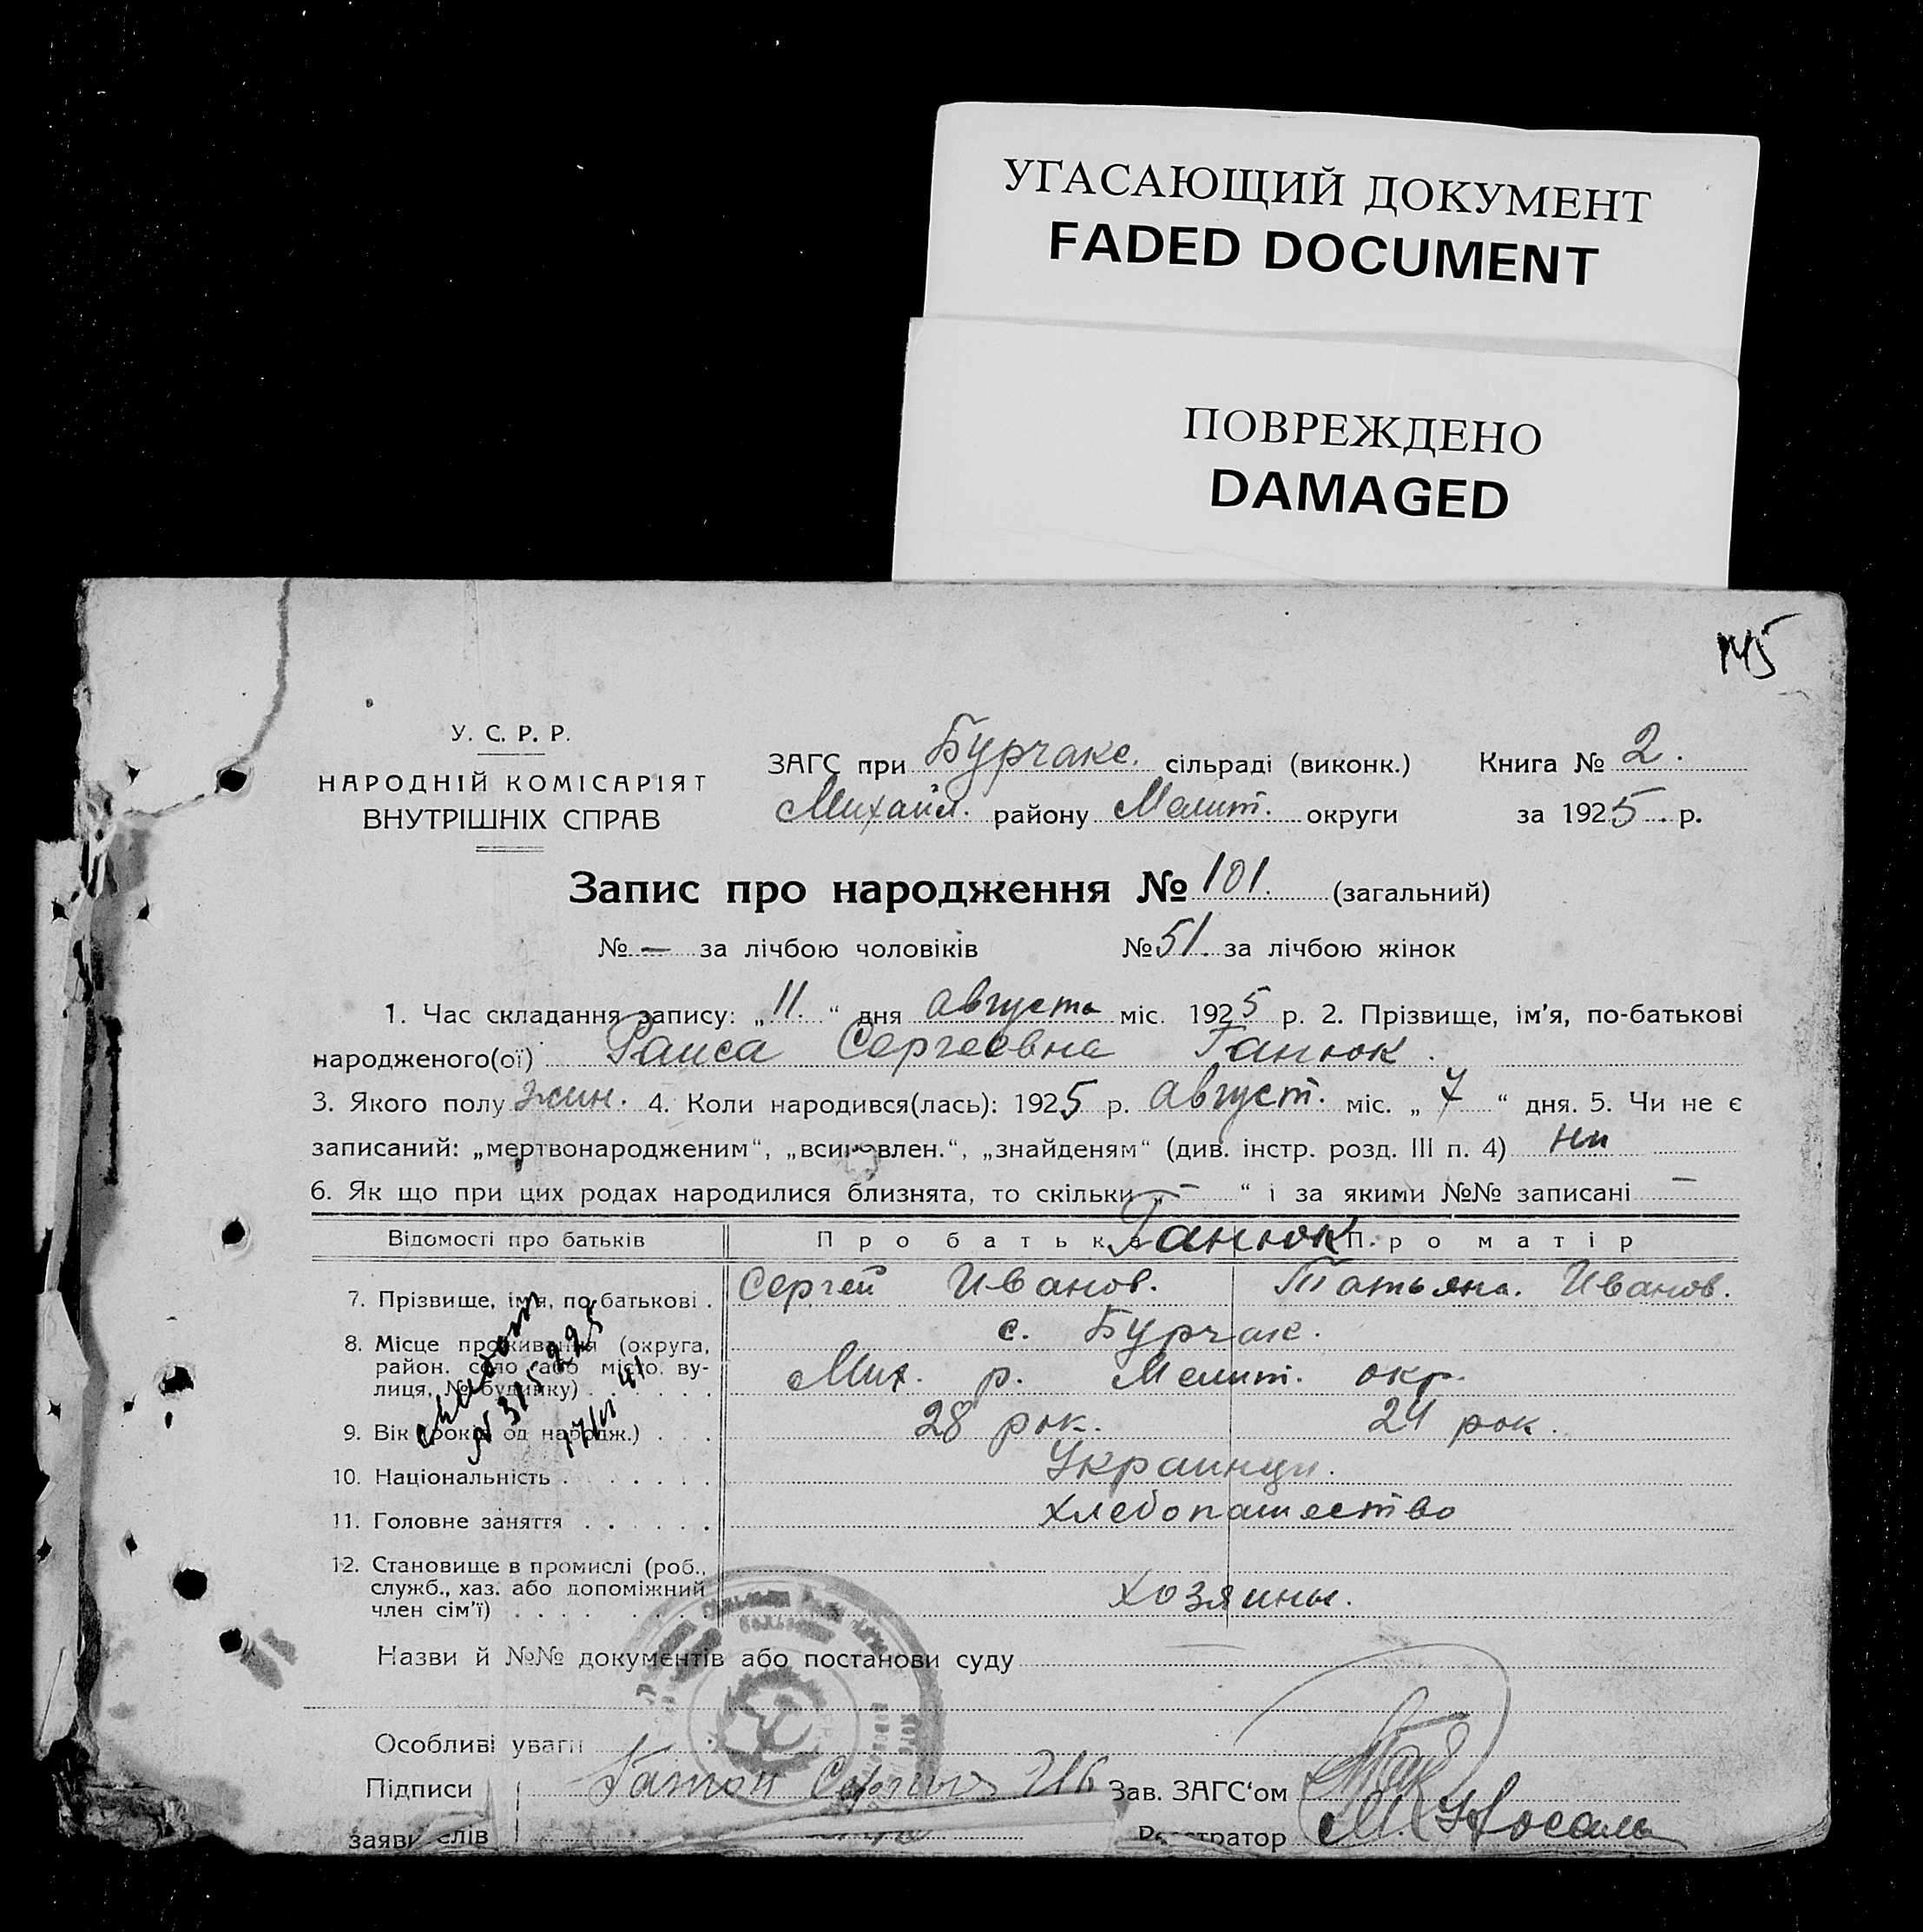 УГАСАЮЩИЙ ДОКУМЕНТ
FADED DOCUMENT
ПОВРЕЖДЕНО
DAMAGED
145
У. С. Р. Р.
НАРОДНІЙ КОМІСАРІЯТ
ВНУТРІШНІХ СПРАВ
ЗАГС при Бурчакс. сільраді (виконк.) Книга № 2.
Михайл. району Мелит. округи за 1925 р.
Запис про народження № 101. (загальний)
№ — за лічбою чоловіків № 51. за лічбою жінок
1. Час складання запису: „11.“ дня августа міс. 1925 р. 2. Прізвище, ім'я, по-батькові
народженого(ої) Раиса Сергеевна Ганюк.
3. Якого полу жин. 4. Коли народився(лась): 1925 р. август. міс. „7“ дня. 5. Чи не є
записаний: „мертвонародженим“, „всиновлен.“, „знайденям“ (див. інстр. розд. III п. 4) ни
6. Як що при цих родах народилися близнята, то скільки „—“ і за якими №№ записані —
Відомості про батьків Про батька Ганюк Про матір
7. Прізвище, ім'я, по-батькові . Сергей Иванов. Татьяна. Иванов.
8. Місце проживання (округа, с. Бурчак.
район. село або місто. ву-
лиця, № будинку) . . . . . Мих. р. Мелит. окр.
9. Вік (років од народж.) . . . 28 рок. 24 рок.
10. Національність . . . . . . . Украинци.
11. Головне заняття . . . . . . хлебопашество
12. Становище в промислі (роб.,
служб., хаз. або допоміжний
член сім'ї) . . . . . . . хозяины.
Назви й №№ документів або постанови суду
Особливі уваги
Підписи Ганюк Сергей Ив Зав. ЗАГС'ом
заявителів Реєстратор М. Носаль